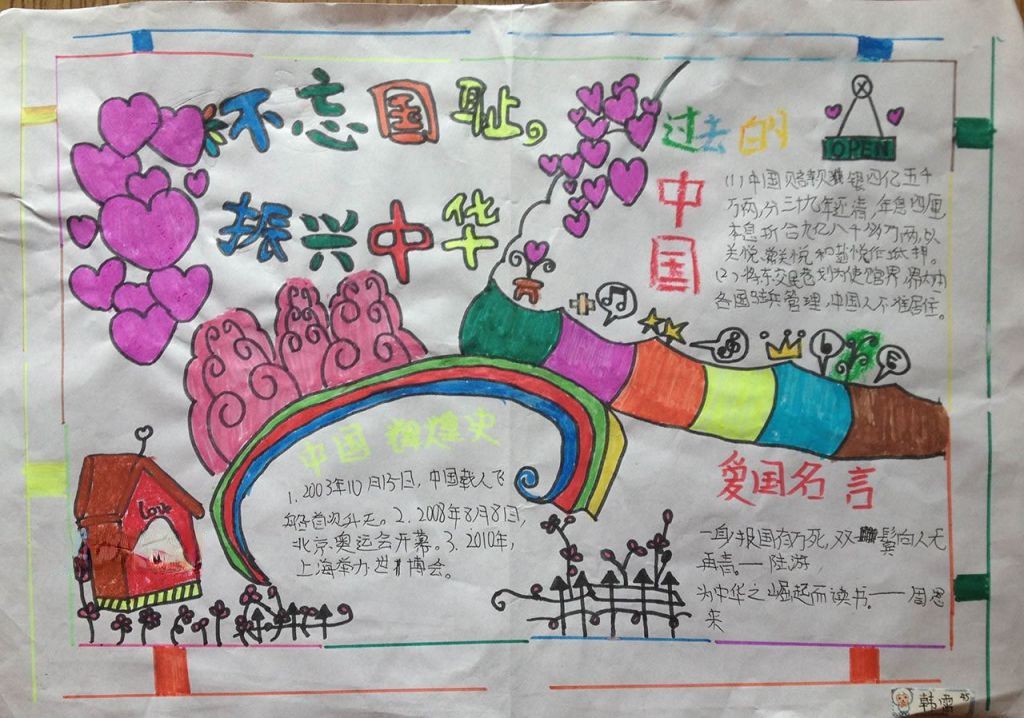 不忘国耻,
振兴中华
过去的
中
国
OPEN
(1)中国赔款 银四亿五千
万两,分三十九年还清,年息四厘
本息折合九亿八千 万两,以
关税 和盐税作抵押。
(2)将东交民巷划为使馆界,界内由
各国 兵管理,中国人不准居住。
Love
中国辉煌史
1.2003年10月15日,中国载人飞
船首次升天。2.2008年8月8日,
北京奥运会开幕。3.2010年,
上海举办世博会。
爱国名言
一身报国有万死,双鬓向人无
再青。——陆游,
为中华之崛起而读书。——周恩
来
韩雪 45